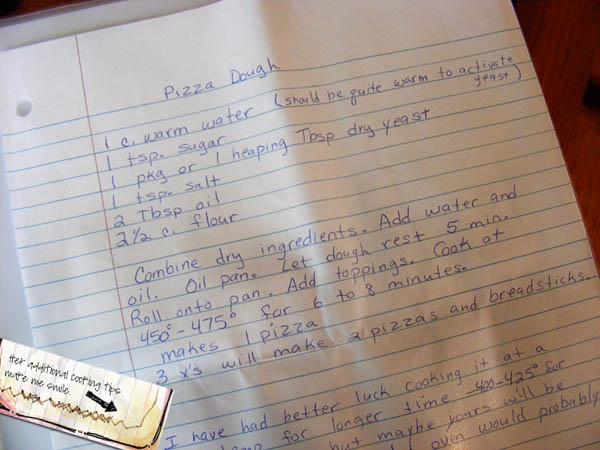 Pizza Dough
1 c. warm water (should be quite warm to activate
yeast)
1 tsp. sugar
1 pkg or 1 heaping Tbsp dry yeast
1 tsp. salt
2 Tbsp oil
2 1/2 c. flour
Combine dry ingredients. Add water and
oil. Oil pan. Let dough rest 5 min.
Roll onto pan. Add toppings. Cook at
450°-475° for 6 to 8 minutes.
makes 1 pizza
3 x's will make 2 pizzas and breadsticks.
I have had better luck cooking it at a
for longer time -400-425° for
but maybe yours will be
oven would probably
Her additional cooking tips
make me smile.